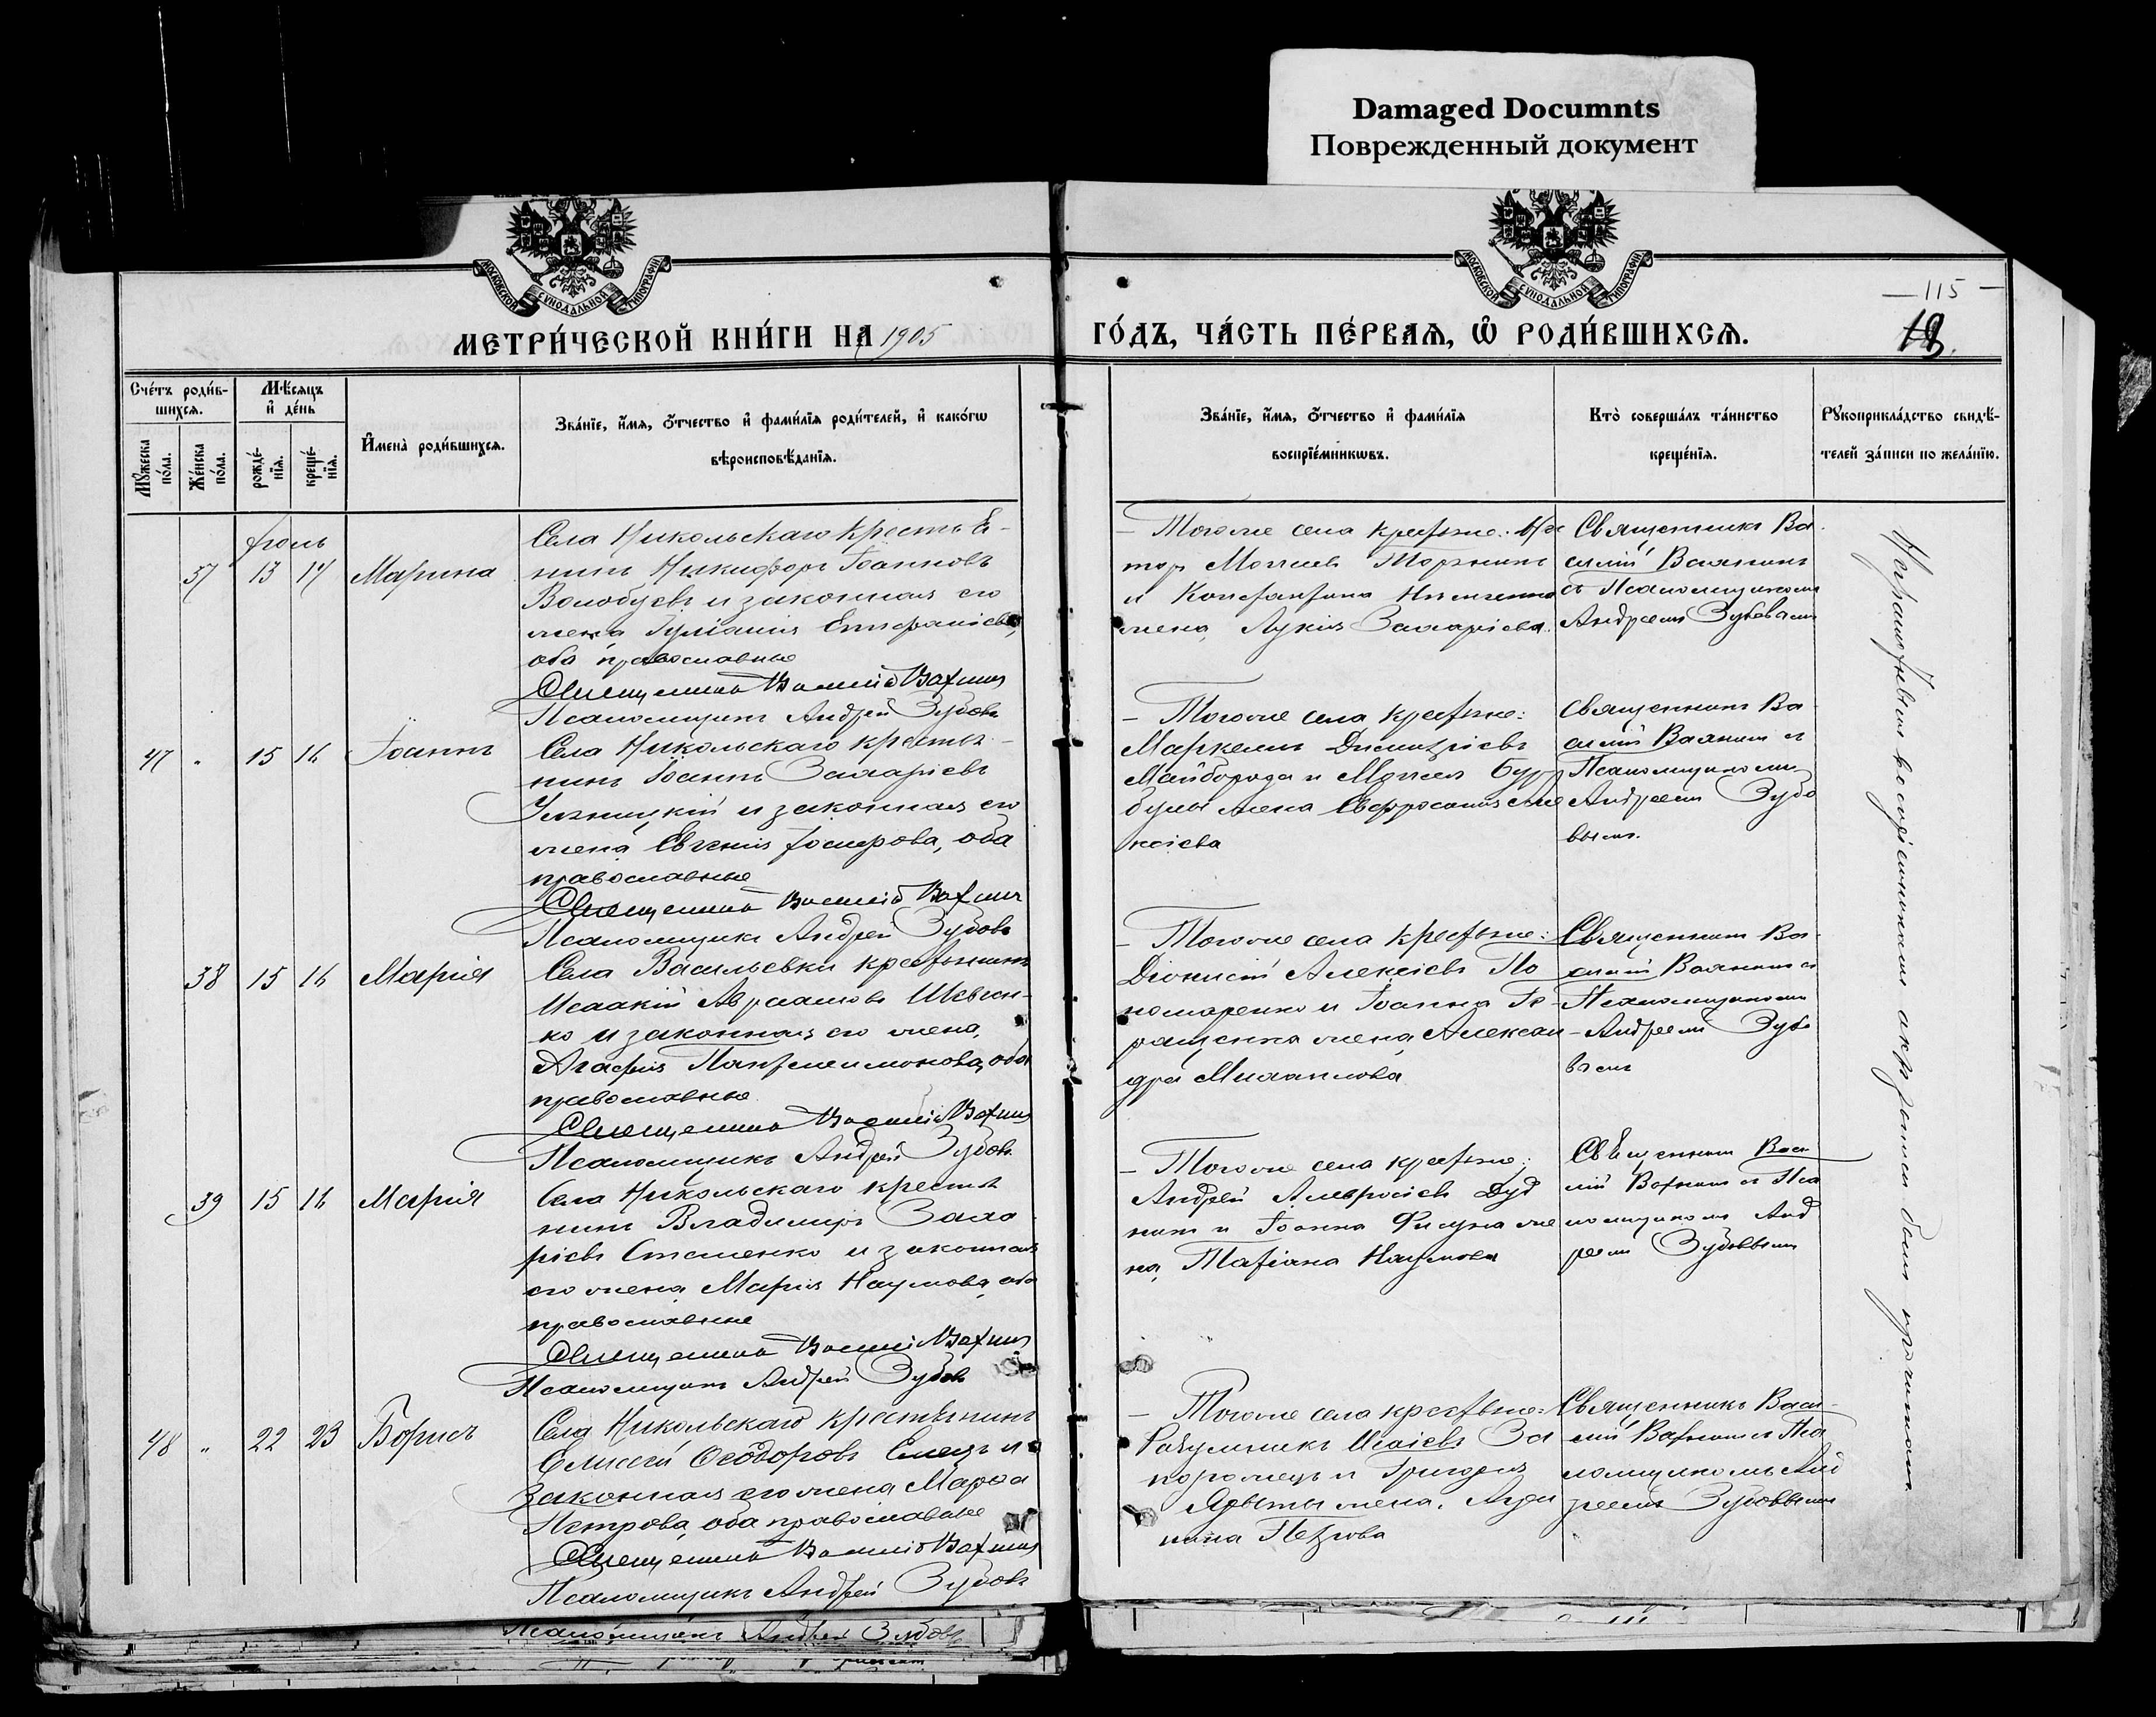 Damaged Documnts
Поврежденный документ
МОСКОВСКОЙ СѴНОДАЛЬНОЙ ТИПОГРАФІИ
МОСКОВСКОЙ СѴНОДАЛЬНОЙ ТИПОГРАФІИ
— 115 —
МЕТРИ́ЧЕСКОЙ КНИ́ГИ НА 1905
ГО́ДЪ, ЧА́СТЬ ПЕ́РВАѦ, Ѡ҆ РОДИ́ВШИХСѦ.
Сче́тъ роди́в-
шихсѧ.
Мѣ́сѧцъ
и҆ де́нь
Мꙋ́жеска
по́ла.
Же́нска
по́ла.
рожде́-
нїѧ.
креще́-
нїѧ.
И҆мена̀ роди́вшихсѧ.
Зва́нїе, и҆́мѧ, ѻ҆́тчество и҆ фами́лїѧ роди́телей, и҆ како́гѡ
вѣроисповѣ́данїѧ.
Зва́нїе, и҆́мѧ, ѻ҆́тчество и҆ фами́лїѧ
воспрїе́мникѡвъ.
Кто̀ соверша́лъ та́инство
креще́нїѧ.
Рꙋкоприкла́дство свидѣ́-
телей за́писи по жела́нїю.
Іюль
37 13 14 Марина
Села Никольскаго крестья-
нинъ Никифоръ Іоанновъ
и законная его
жена Іуліанія
оба православные
Священникъ Василій
Псаломщикъ Андрей Зубовъ
Тогоже села крестьяне:
и
жена Лукія Захаріева.
Священникъ Ва-
силій
съ Псаломщикомъ
Андреемъ Зубовымъ
47 " 15 16 Іоаннъ
Села Никольскаго крестья-
нинъ Іоаннъ Захаріевъ
и законная его
жена Евгенія оба
православные
Священникъ Василій
Псаломщикъ Андрей Зубовъ
— Тогоже села крестьяне:
Маркелъ Димитріевъ
Майборода и
жена Евфросинія Але
ксіева
Священникъ Ва-
силій съ
Псаломщикомъ
Андреемъ Зубо
вымъ.
38 15 16 Марія
Села Васильевки крестьянинъ
Исаакій Авраамовъ Шевчен-
ко и законная его жена,
Агафія Пантелеимонова, оба
православные
Священникъ Василій
Псаломщикъ Андрей Зубовъ
— Тогоже села крестьяне:
Діонисій Алексіевъ По
номаренко и Іоанна Ге-
ращенка жена Алексан-
дра Михаилова
Священникъ Ва-
силій съ
Псаломщикомъ
Андреемъ Зубо
вымъ
39 15 16 Марія
Села Никольскаго крестья
нинъ Владимиръ Заха
ріевъ Стаценко и законная
его жена Марія Наумова, оба
православные
Священникъ Василій
Псаломщикъ Андрей Зубовъ
— Тогоже села крестьяне:
Андрей Амвросіевъ Дуд
никъ и Іоанна Фисуна же
на, Татіана Наумова
Священникъ Васи
лій съ Пса
ломщикомъ Анд
реемъ Зубовымъ
48 " 22 23 Борисъ
Села Никольскаго крестьянинъ
Елисей Ѳеодоровъ Елецъ и
законная его жена Марѳа
Петрова, оба православные
Священникъ Василій
Псаломщикъ Андрей Зубовъ
— Тогоже села крестьяне:
Исаіевъ За
порожецъ и Григорія
жена,
Петрова
Священникъ Васи-
лій съ Пса
ломщикомъ Анд
реемъ Зубовымъ
Псаломщикъ Андрей Зубовъ